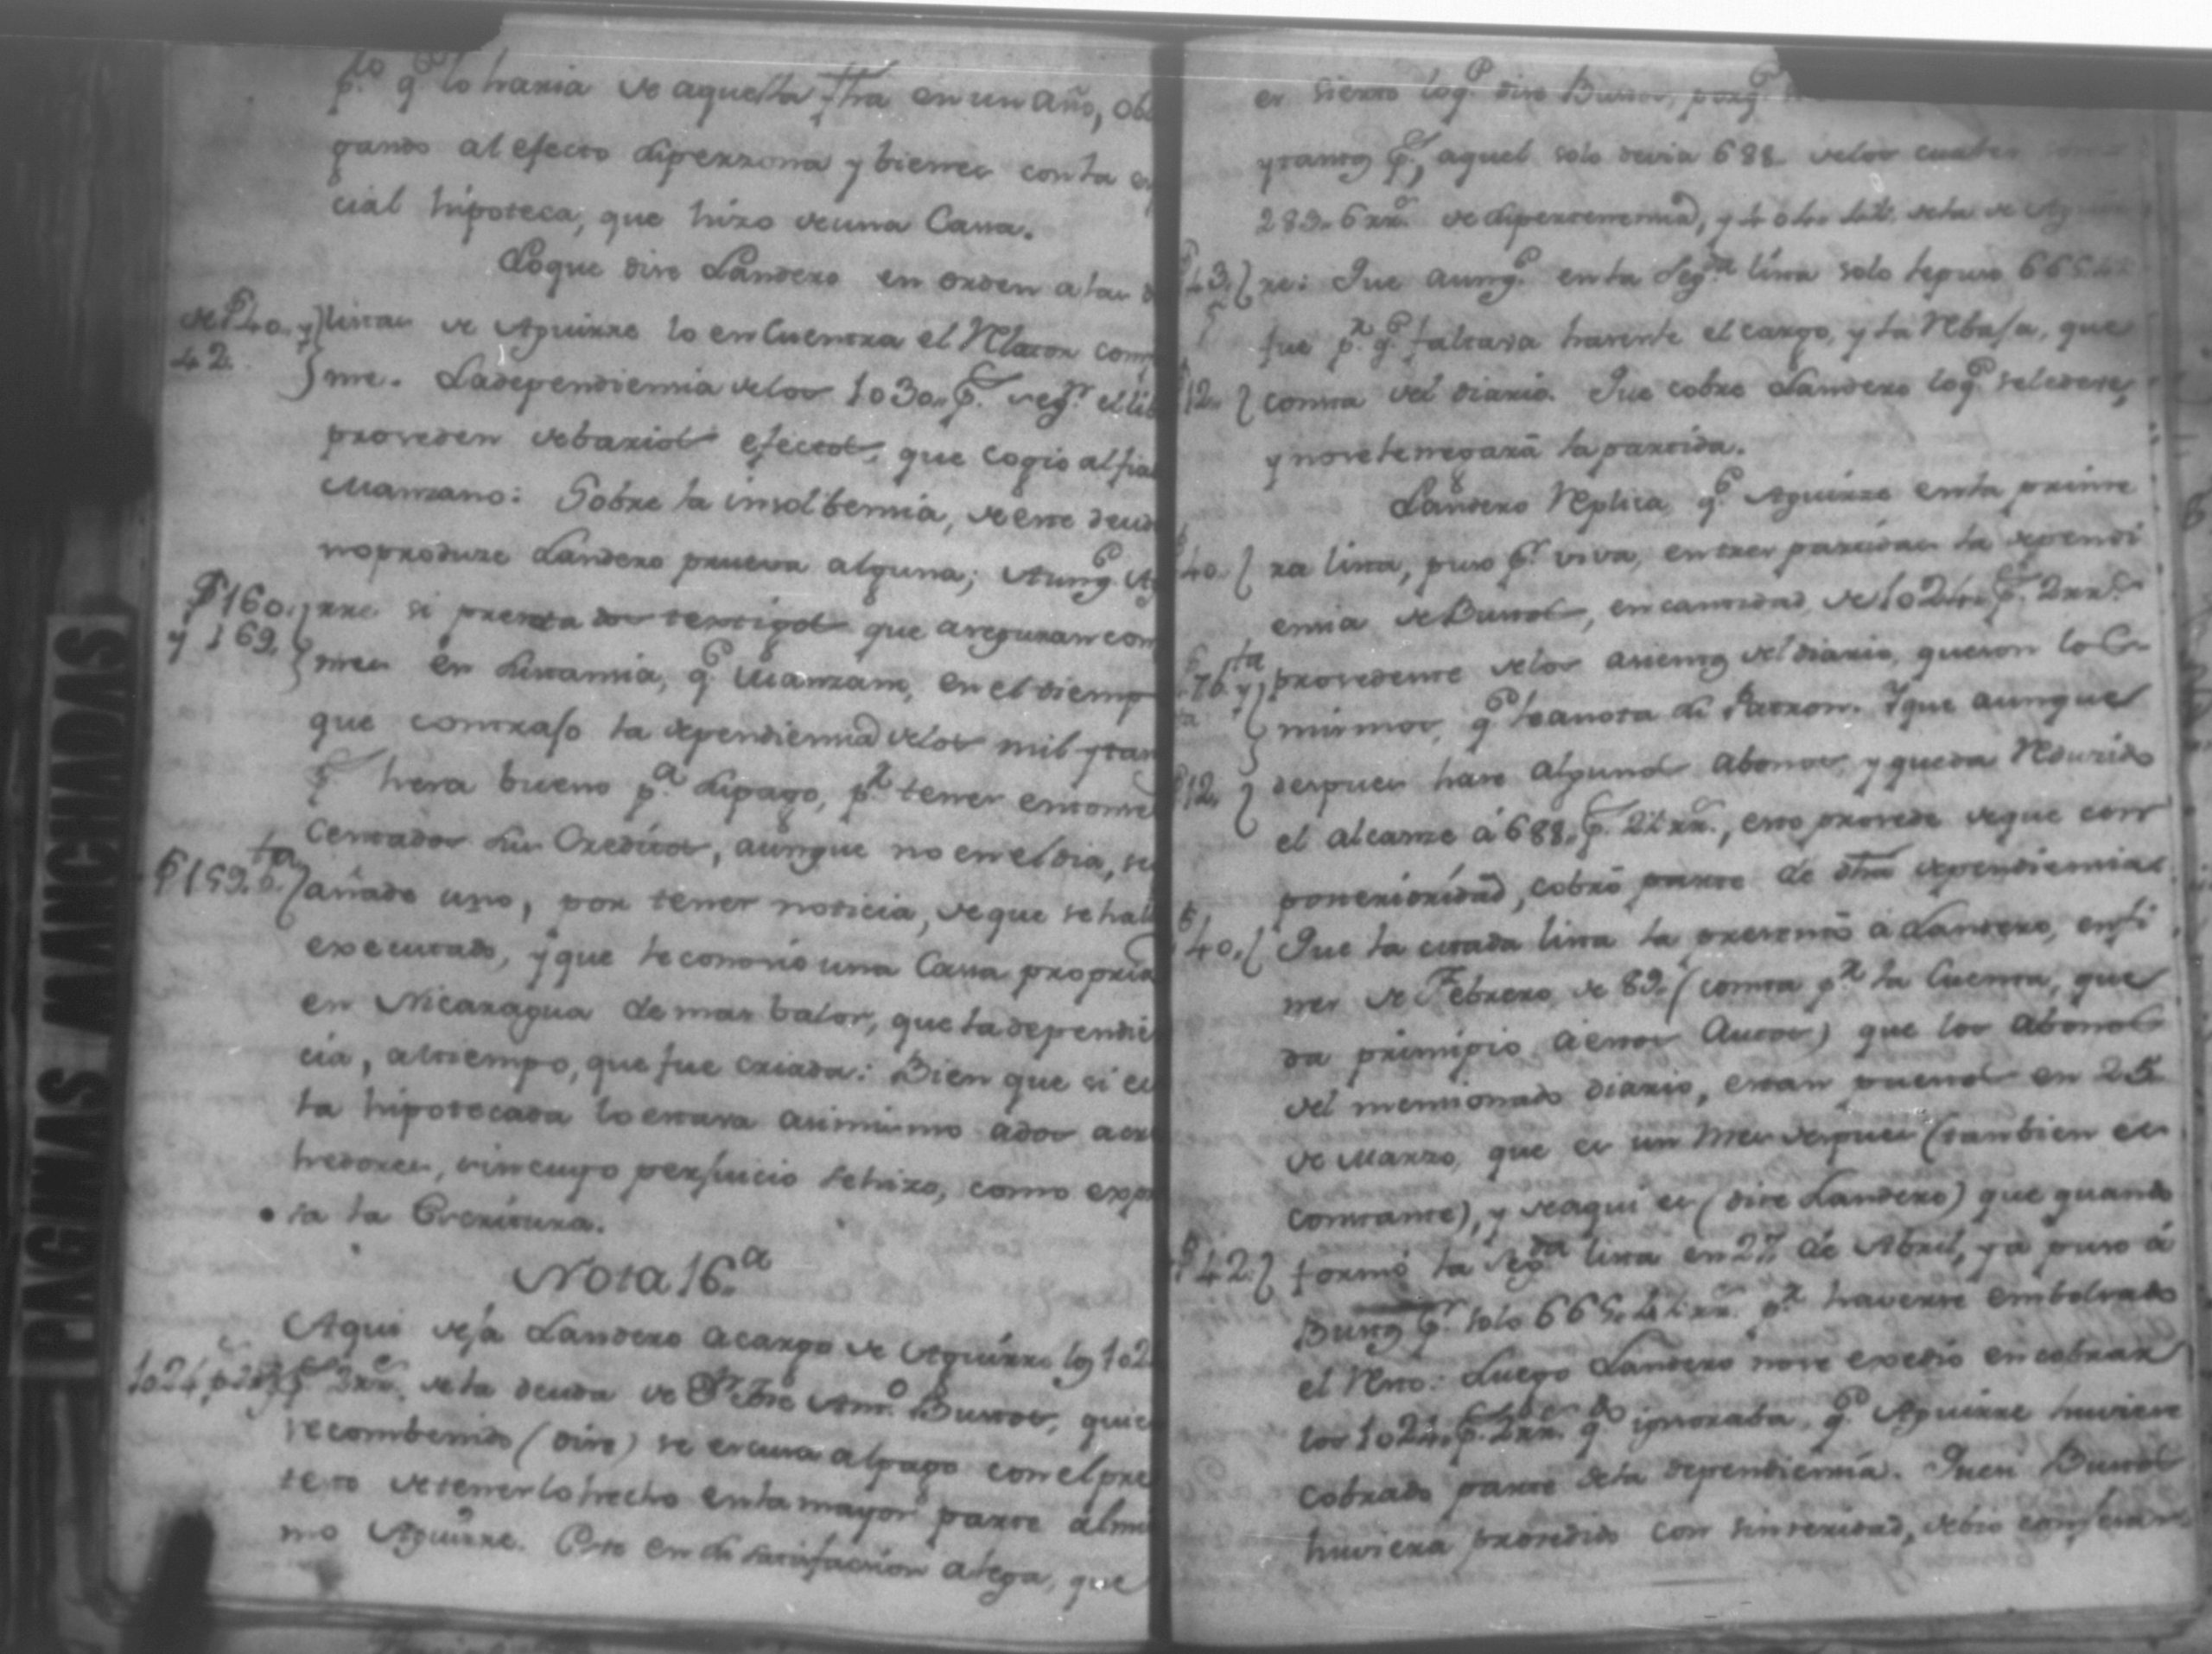 p.to q.e lo traxia de aquella fha en un año, obli
gando al efecto su perzona y bienes con la es
cial hipoteca, que hizo de una Casa.
Loque dice Landero en orden a las
de f 40. y listas de Aguirre lo encuentra el Relator confor
42. me. La dependiencia delos 1030,, p.s seg.n el lib
proceden de barios efectos, que cogio al fia
Manzano: Sobre la insolbencia, de este deud
no produze Landero prueva alguna; Aunq.e A
f 160. rre si presta dos testigos que aseguran con
y 169. mes en sustancia, q.e Manzano, en el tiemp
que contrajo la dependiencia delos mil y tan
p.s hera bueno p.a su pago, p.r tener en
Centador sus Creditos, aunque no en el dia, se
f 159. b.ta añade uno, por tener noticia, de que se hall
executado, y que le conocio una Casa propria
en Nicaragua de mas balor, que la dependie
cia, al tiempo, que fue criada: Bien que si es
ta hipotecada lo estava asimismo a dos acr
hedores, sin cuyo perjuicio se hizo, como exp
sa la Escritura.
Nota 16.a
Aqui deja Landero a cargo de Aguirre los 102
1024 p.s 2 rr.s p.s 2 rr.s de la deuda de D.n Jose Ant.o Bustos, quie
recombenido (dice) se escusa al pago con el pre
texto de tenerlo hecho en la mayor parte al mis
mo Aguirre. Este en su satisfaccion alega, que
es sierto loq.e dice Bustos, porq.e
y tantos p.s, aquel solo devia 688 delos cuales
289,, 6 rr.s de su pertenencia, y lo de la de Agui
43. rre: Que aunq.e en la Seg.da lista solo le puso 665
fue p.r q.e faltava hacerle el cargo, y la Rebaja, que
12. consta del diario. Que cobre Landero loq.e se le deve,
y no se le negará la partida.
Landero Replica q.e Aguirre en la prime
40. ra lista, puso p.r viva, en tres partidas la dependi
encia de Bustos, en cantidad de 1024,, p.s 2 rr.s
76. b.ta y procedente delos asientos del diario, que son los
mismos, q.e le anota su Patron. Y que aunque
12. despues hace algunos abonos, y queda Reducido
el alcanze á 688,, p.s 2½ rr.s, esto procede de que con
posterioridad, cobró parte de dha dependiencia:
40. Que la citada lista la presentó á Landero, en fi
nes de Febrero de 89. (consta p.r la Cuenta, que
da principio á estos Autos) que los abonos
del mencionado diario, estan puestos en 25
de Marzo, que es un mes despues (tambien es
constante), y de aqui es (dice Landero) que quando
42. formó la Seg.da lista en 27 de Abril, ya puso á
Bustos p.r solo 665,, 4½ rr.s p.r haverse embolzado
el Resto: Luego Landero no se exedió en cobrar
los 1024,, p.s 2 rr.s q.do ignoraba, q.e Aguirre huviese
cobrado parte de la dependiencia. Que si Bustos
huviera procedido con sinseridad, debio confesar
PAGINAS MANCHADAS